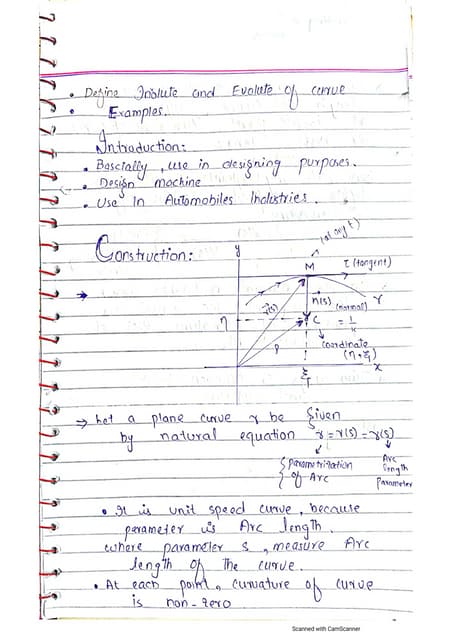 • Define Inolute and Evolute of curve
• Examples.
Introduction:
• Bascially, use in designing purposes.
• Design machine
• Use In Automobiles Industries.
Construction:
y
M
τ (tangent)
n(s)
(normal)
γ
r(s)
η
C = 1/k
coordinate
(η, ξ)
ρ
ξ
x
T
⇒ Let a plane curve γ be Given
by natural equation γ = γ(s) = γ(s)
{ Parametrization of Arc
Arc length Parameter
• It is unit speed curve, because
perameter is Arc length.
where parameter s, measure Arc
length of the curve.
• At each point, curvature of curve
is non-zero
Scanned with CamScanner